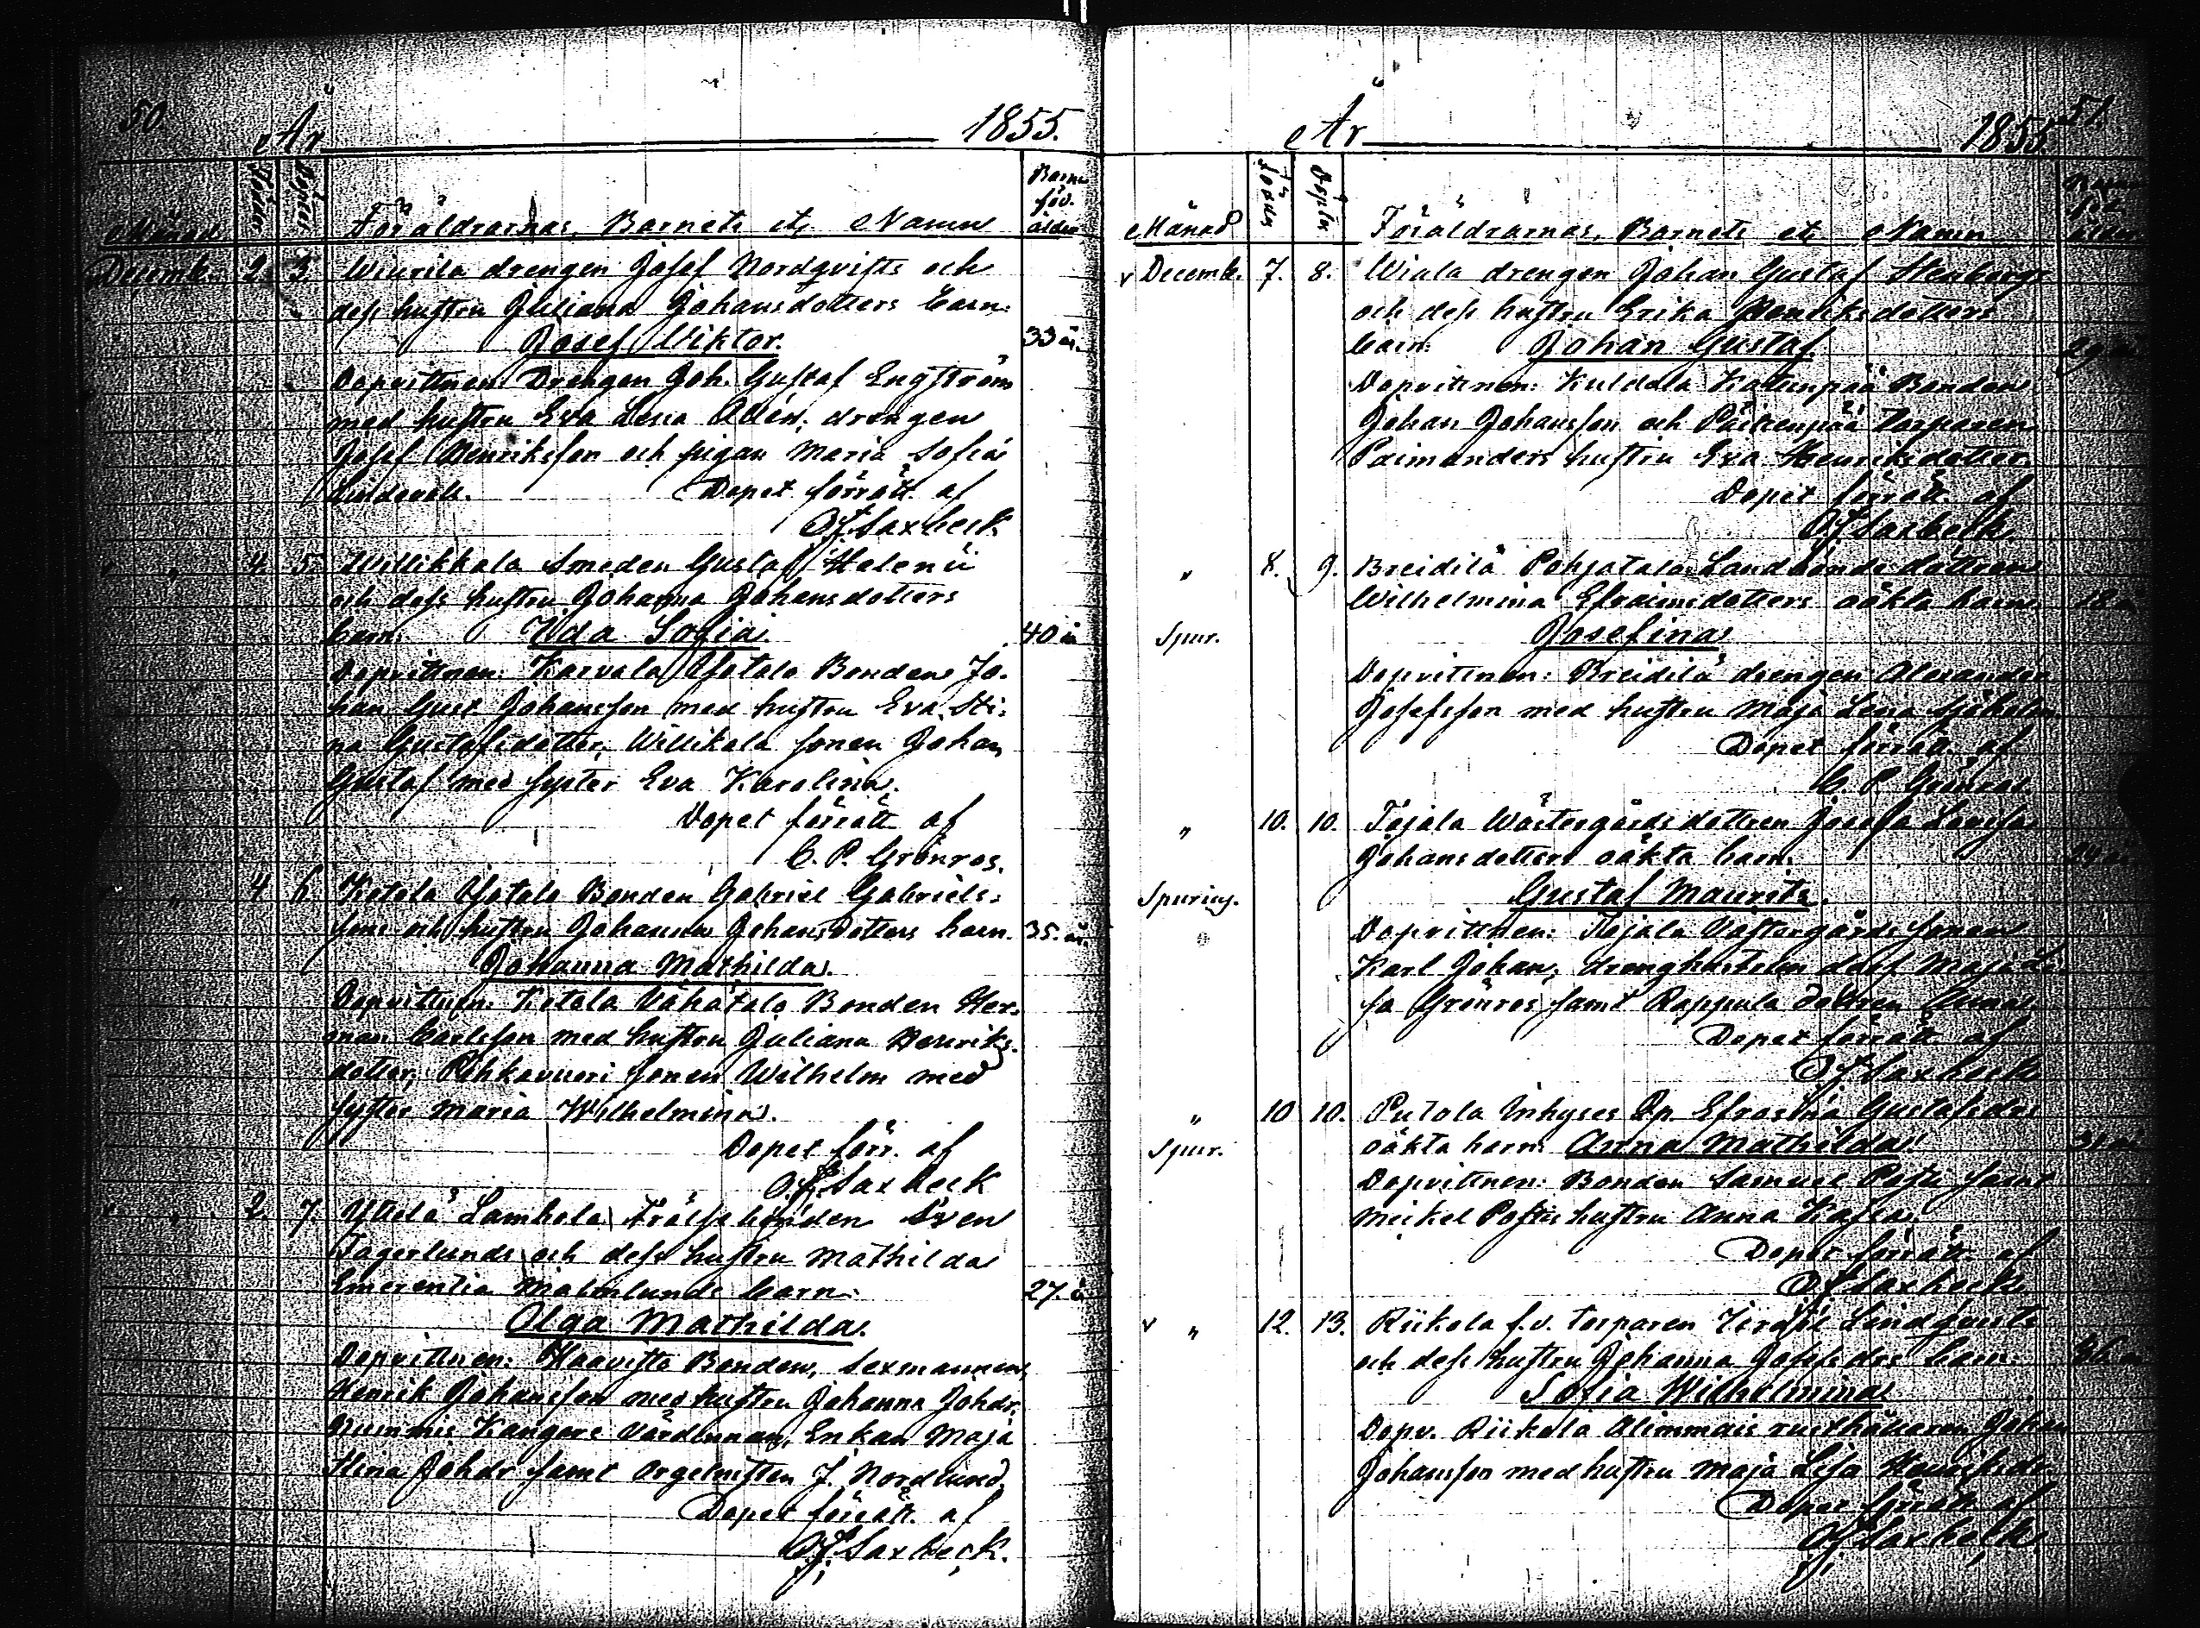 50.
År 1855.
Månad Födde Döpte Föräldrarnas, Barnets etc Namn Barna föd. ålder
Decemb. 2. 3. Wiurila drengen Josef Nordqvists och
dess hustru Juliana Johansdotters barn:
Josef Wiktor. 33 år.
Dopvittnen: Drengen Joh. Gustaf Engström
med hustru Eva Lena Alén, drengen
Josef Henriksson och pigan Maria Sofia
Lindevall. Dopet förrätt. af
O.F. Saxbeck
" 4. 5. Willikkala Smeden Gustaf Helenii
och dess hustru Johanna Johansdotters
barn: Ida Sofia 40 år
Dopvittnen: Karvala Ylotalo Bonden Jo-
han Gust. Johansson med hustru Eva Sti-
na Gustafsdotter, Willikala sonen Johan
Gustaf med syster Eva Karolina.
Dopet förrätt. af
C. P. Grönros.
" 4 6. Ketola Ylotalo Bonden Gabriel Gabriels-
sons och hustru Johanna Johansdotters barn. 35. år
Johanna Mathilda.
Dopvittnen: Ketola Vähätalo Bonden Her-
man Carlsson med hustru Juliana Henriks-
dotter, Pihkavuori sonen Wilhelm med
syster Maria Wilhelmina.
Dopet förr. af
O.F. Saxbeck
" 2. 7. Lamhola Frälsebonden Sven
Fagerlunds och dess hustru Mathilda
Emerentia Malmlunds barn: 27. å
Olga Mathilda.
Dopvittnen: Haavisto Bonden, Sexmannen
Henrik Johansson med hustru Johanna Johdr.
Nummis Kangare Värdinnan, Enkan Maja
Stina Johdr samt Orgelnisten J. Nordlund.
Dopet förrätt. af
O.F. Saxbeck.
51.
År 1855.
Månad Födde Döpte Föräldrarnas, Barnets etc Namn
Decemb. 7. 8. Wiala drengen Johan Gustaf Stenbergs
och dess hustru Erika Henriksdotters
barn: Johan Gustaf. 29 år
Dopvittnen: Kuldala Kattenpää Bonden
Johan Johansson och torparen
Paimanders hustru Eva Henriksdotter.
Dopet förrätt. af
O.F. Saxbeck
" 8. 9. Breidilä Pohjatalo Landbonde dottren
Wilhelmina Efraimsdotters oäkta barn 18 å
Spur. Josefina
Dopvittnen: Breidilä drengen Alexander
Josefsson med hustru Maja Lena Sjöholm
Dopet förrätt. af
C. P. Grönros
" 10. 10. Tojala Wästergårds dottren Josefa Lovisa
Johansdotters oäkta barn. 24 år
Spurius. Gustaf Maurits.
Dopvittnen: Tojala Västergårds sonen
Karl Johan, drenghustrun Maja Li-
sa Grönros samt Rappula dottren Anna
Dopet förrätt. af
O.F. Saxbeck
" 10 10. Putola Inhyses Dp. Efrosina Gustafsdrs
Spur. oäkta barn: Anna Mathilda. 31 år
Dopvittnen: Bonden Samuel Posti samt
Mickel Postis hustru Anna Kajsa.
Dopet förrätt. af
O.F. Saxbeck
" 12. 13. Riikola f.v. torparen Lindqvists
och dess hustru Johanna Josefsdrs barn: 36 å
Sofia Wilhelmina
Dopv. Riikola Alimmais rusthållaren Johan
Johansson med hustru Maja Lisa Henriksdr
Dopet förrätt. af
O.F. Saxbeck